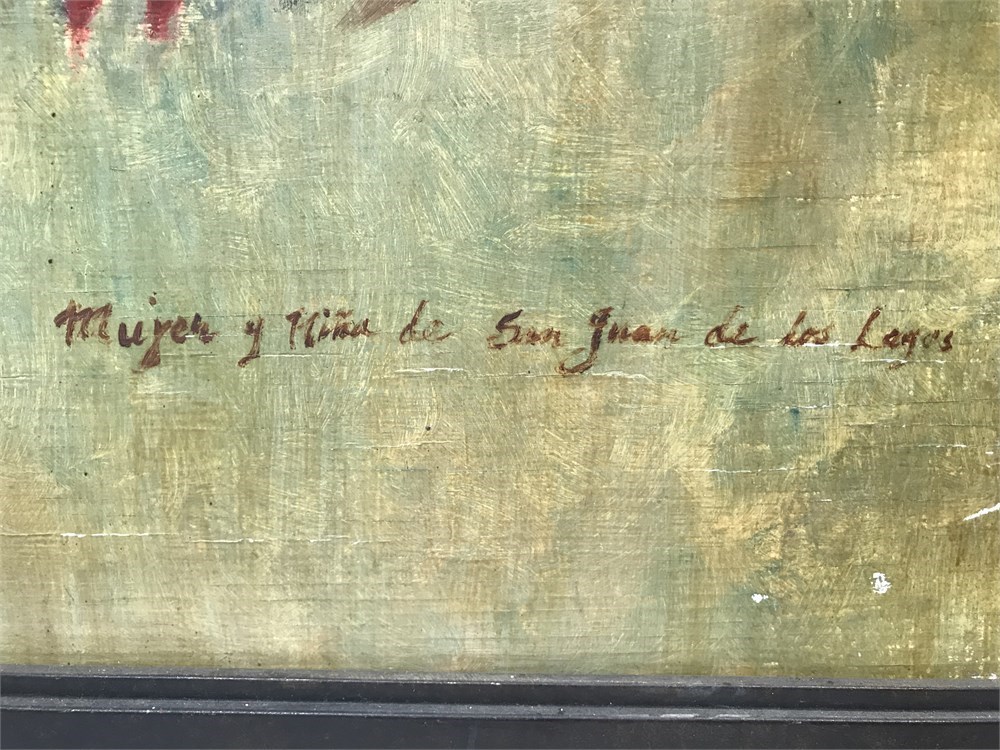 Mujer y Niña de San Juan de los Lagos